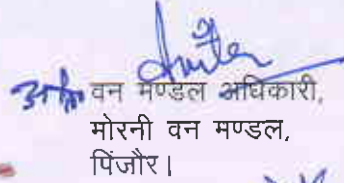 वन मण्डल अधिकारी,
मोरनी वन मण्डल,
पिंजौर।